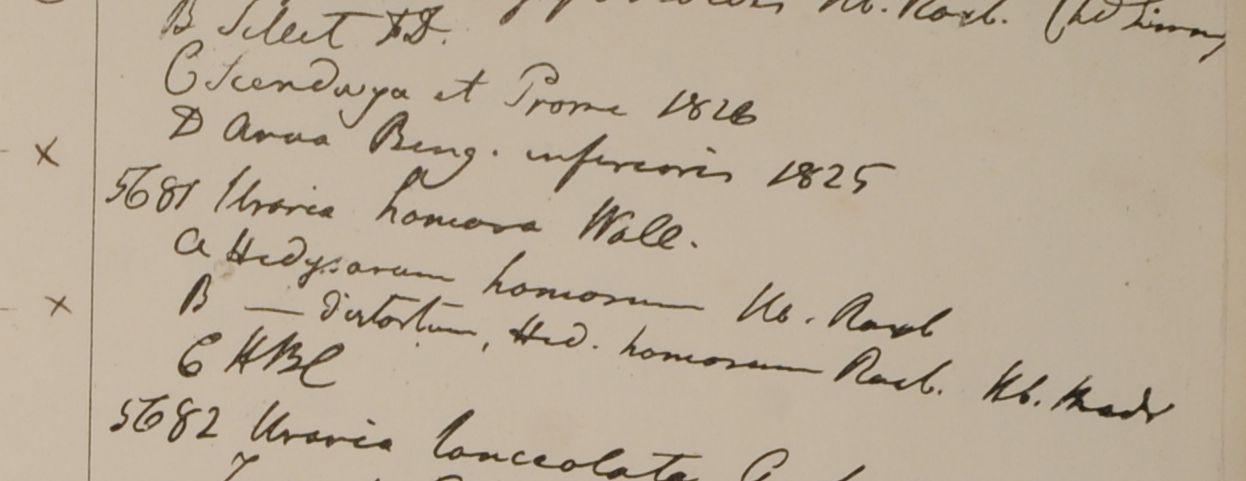 Hb. Roxb. (hd Linn
B Sillet FD.
C Segendwya et Prome 1826
D Arva Beng. inferioris 1825
5681 Uraria hamosa Wall.
a Hedysarum hamosum Hb. Roxb
B — distortum, Hed. hamosum Roxb. Hb. Madr
C HBC
5682 Uraria lanceolata